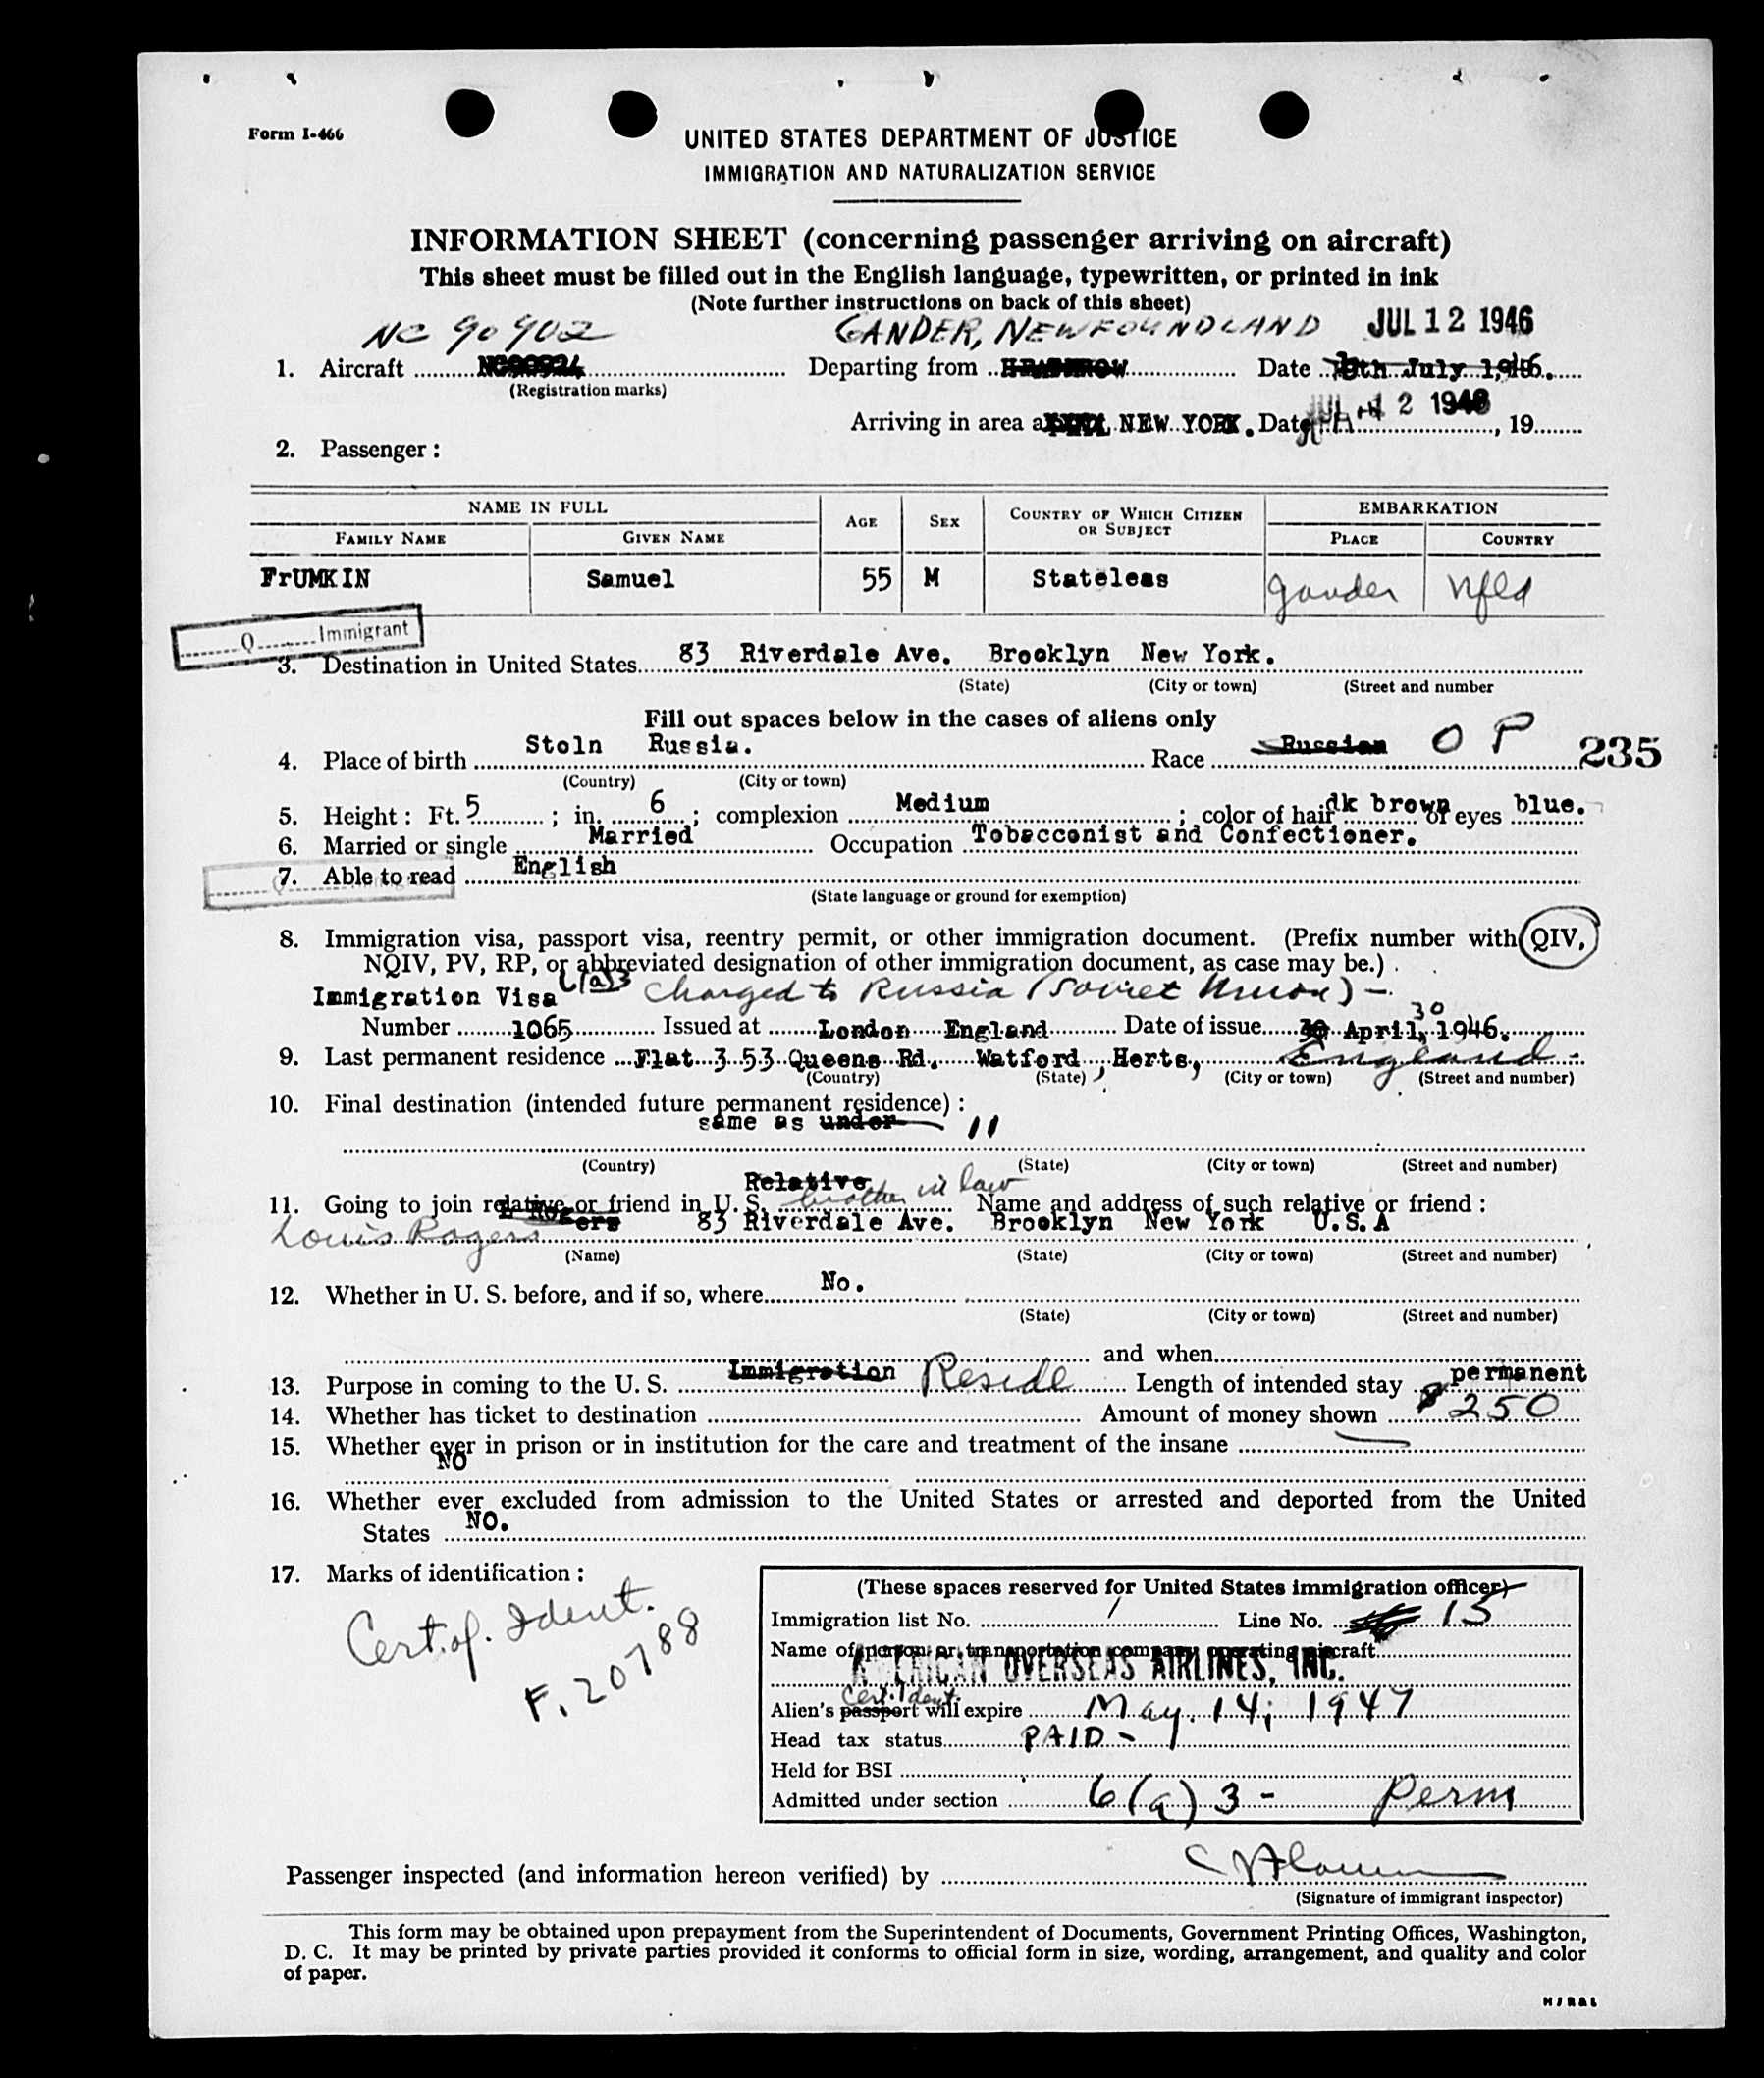 Form I-466
UNITED STATES DEPARTMENT OF JUSTICE
IMMIGRATION AND NATURALIZATION SERVICE
INFORMATION SHEET (concerning passenger arriving on aircraft)
This sheet must be filled out in the English language, typewritten, or printed in ink
(Note further instructions on back of this sheet)
NC 90902 GANDER, NEWFOUNDLAND JUL 12 1946
1. Aircraft Departing from Date July 1946.
(Registration marks)
Arriving in area NEW YORK. Date 12 1946, 19
2. Passenger:
NAME IN FULL AGE SEX COUNTRY OF WHICH CITIZEN OR SUBJECT EMBARKATION
FAMILY NAME GIVEN NAME PLACE COUNTRY
FrUMKIN Samuel 55 M Stateless Gander Nfld
Q Immigrant
3. Destination in United States 83 Riverdale Ave. Brooklyn New York.
(State) (City or town) (Street and number
Fill out spaces below in the cases of aliens only
4. Place of birth Stoln Russia. Race Russian O P 235
(Country) (City or town)
5. Height: Ft. 5; in. 6; complexion Medium; color of hair dk brown of eyes blue.
6. Married or single Married Occupation Tobacconist and Confectioner.
7. Able to read English
(State language or ground for exemption)
8. Immigration visa, passport visa, reentry permit, or other immigration document. (Prefix number with QIV,
NQIV, PV, RP, or abbreviated designation of other immigration document, as case may be.)
Immigration Visa 6(a)3 Charged to Russia (Soviet Union) -
Number 1065 Issued at London England Date of issue 30 April, 1946.
9. Last permanent residence Flat 3 53 Queens Rd. Watford, Herts, England -
(Country) (State) (City or town) (Street and number)
10. Final destination (intended future permanent residence):
same as under 11
(Country) (State) (City or town) (Street and number)
Relative brother in law
11. Going to join relative or friend in U. S. Name and address of such relative or friend:
Louis Rogers 83 Riverdale Ave. Brooklyn New York U.S.A
(Name) (State) (City or town) (Street and number)
12. Whether in U. S. before, and if so, where No.
(State) (City or town) (Street and number)
and when
13. Purpose in coming to the U. S. Immigration Reside Length of intended stay permanent
14. Whether has ticket to destination Amount of money shown $250
15. Whether ever in prison or in institution for the care and treatment of the insane
NO
16. Whether ever excluded from admission to the United States or arrested and deported from the United
States NO.
17. Marks of identification:
Cert. of. Ident.
F. 20788
(These spaces reserved for United States immigration officer)
Immigration list No. 1 Line No. 15
Name of person or transportation company operating aircraft
AMERICAN OVERSEAS AIRLINES, INC.
Cert. Ident.
Alien's passport will expire May. 14, 1947
Head tax status PAID -
Held for BSI
Admitted under section 6(a) 3 - Perm
Passenger inspected (and information hereon verified) by
(Signature of immigrant inspector)
This form may be obtained upon prepayment from the Superintendent of Documents, Government Printing Offices, Washington,
D. C. It may be printed by private parties provided it conforms to official form in size, wording, arrangement, and quality and color
of paper.